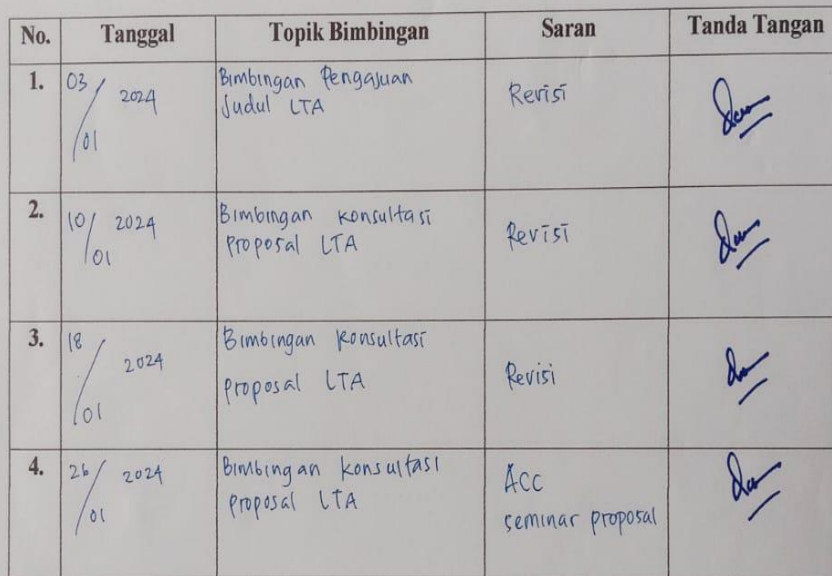 No. Tanggal Topik Bimbingan Saran Tanda Tangan
1. 03/01 2024 Bimbingan Pengajuan Revisi
Judul LTA
2. 10/01 2024 Bimbingan konsultasi Revisi
proposal LTA
3. 18/01 2024 Bimbingan konsultasi Revisi
proposal LTA
4. 26/01 2024 Bimbingan konsultasi ACC
proposal LTA seminar proposal